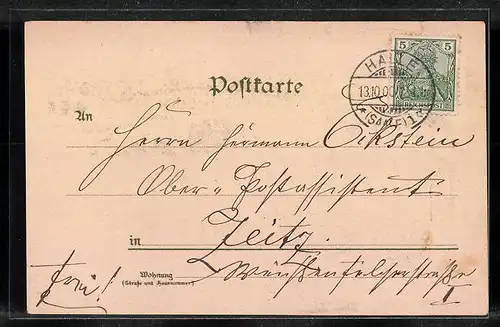 5 5
HALLE
13.10.00
(SAALE) 1
Postkarte
An
Herrn Hermann Eckstein
Ober-Postassistent
in Zeitz
Wohnung
(Straße und Hausnummer)
Weißenfelserstraße